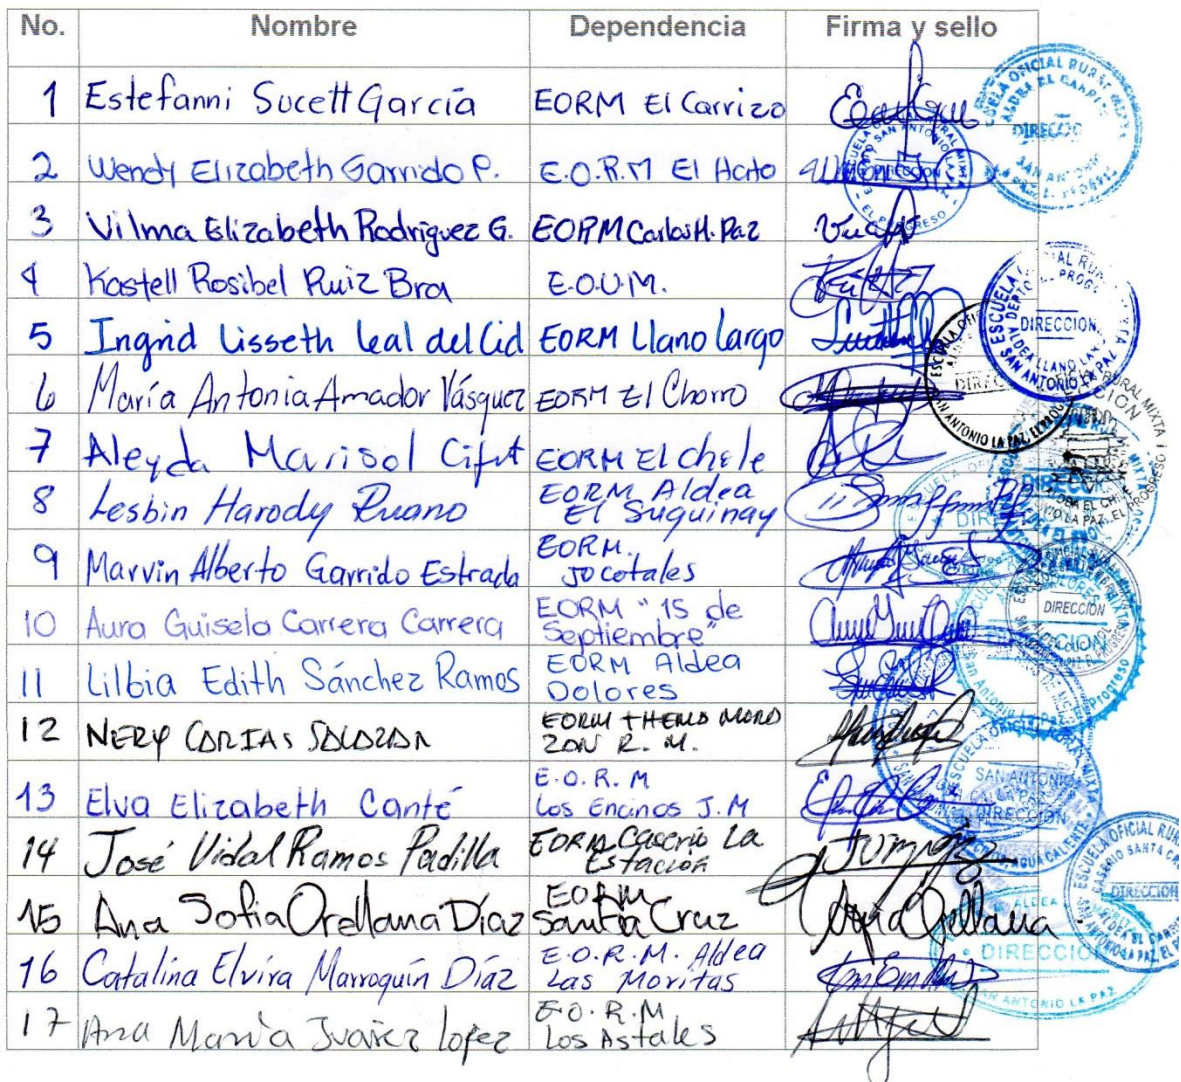 No. Nombre Dependencia Firma y sello
1 Estefanni Sucett García EORM El Carrizo
2 Wendy Elizabeth Garrido P. E.O.R.M El Hato
3 Vilma Elizabeth Rodriguez G. EORM Carlos H. Paz
4 Kastell Rosibel Ruiz Bra E.O.U.M.
5 Ingrid Lisseth Leal del Cid EORM Llano Largo
6 María Antonia Amador Vásquez EORM El Chorro
7 Aleyda Marisol EORM El chile
8 Lesbin Harody Ruano EORM Aldea
El Suquinay
9 Marvin Alberto Garrido Estrada EORM.
Jocotales
10 Aura Guisela Carrera Carrera EORM "15 de
Septiembre"
11 Lilbia Edith Sánchez Ramos EORM Aldea
Dolores
12 NERY EORM
R. M.
13 Elva Elizabeth Canté E.O.R.M
Los Encinos J.M
14 José Vidal Ramos Padilla EORM Caserio La
Estación
15 Ana Sofia Orellana Díaz EORM
Santa Cruz Sofia Orellana
16 Catalina Elvira Marroquín Díaz E.O.R.M. Aldea
Las Moritas
17 Ana María Juárez Lopez E.O.R.M
Los Astales
DIRECCION
DIRECCIÓN
SAN ANTONIO LA PAZ